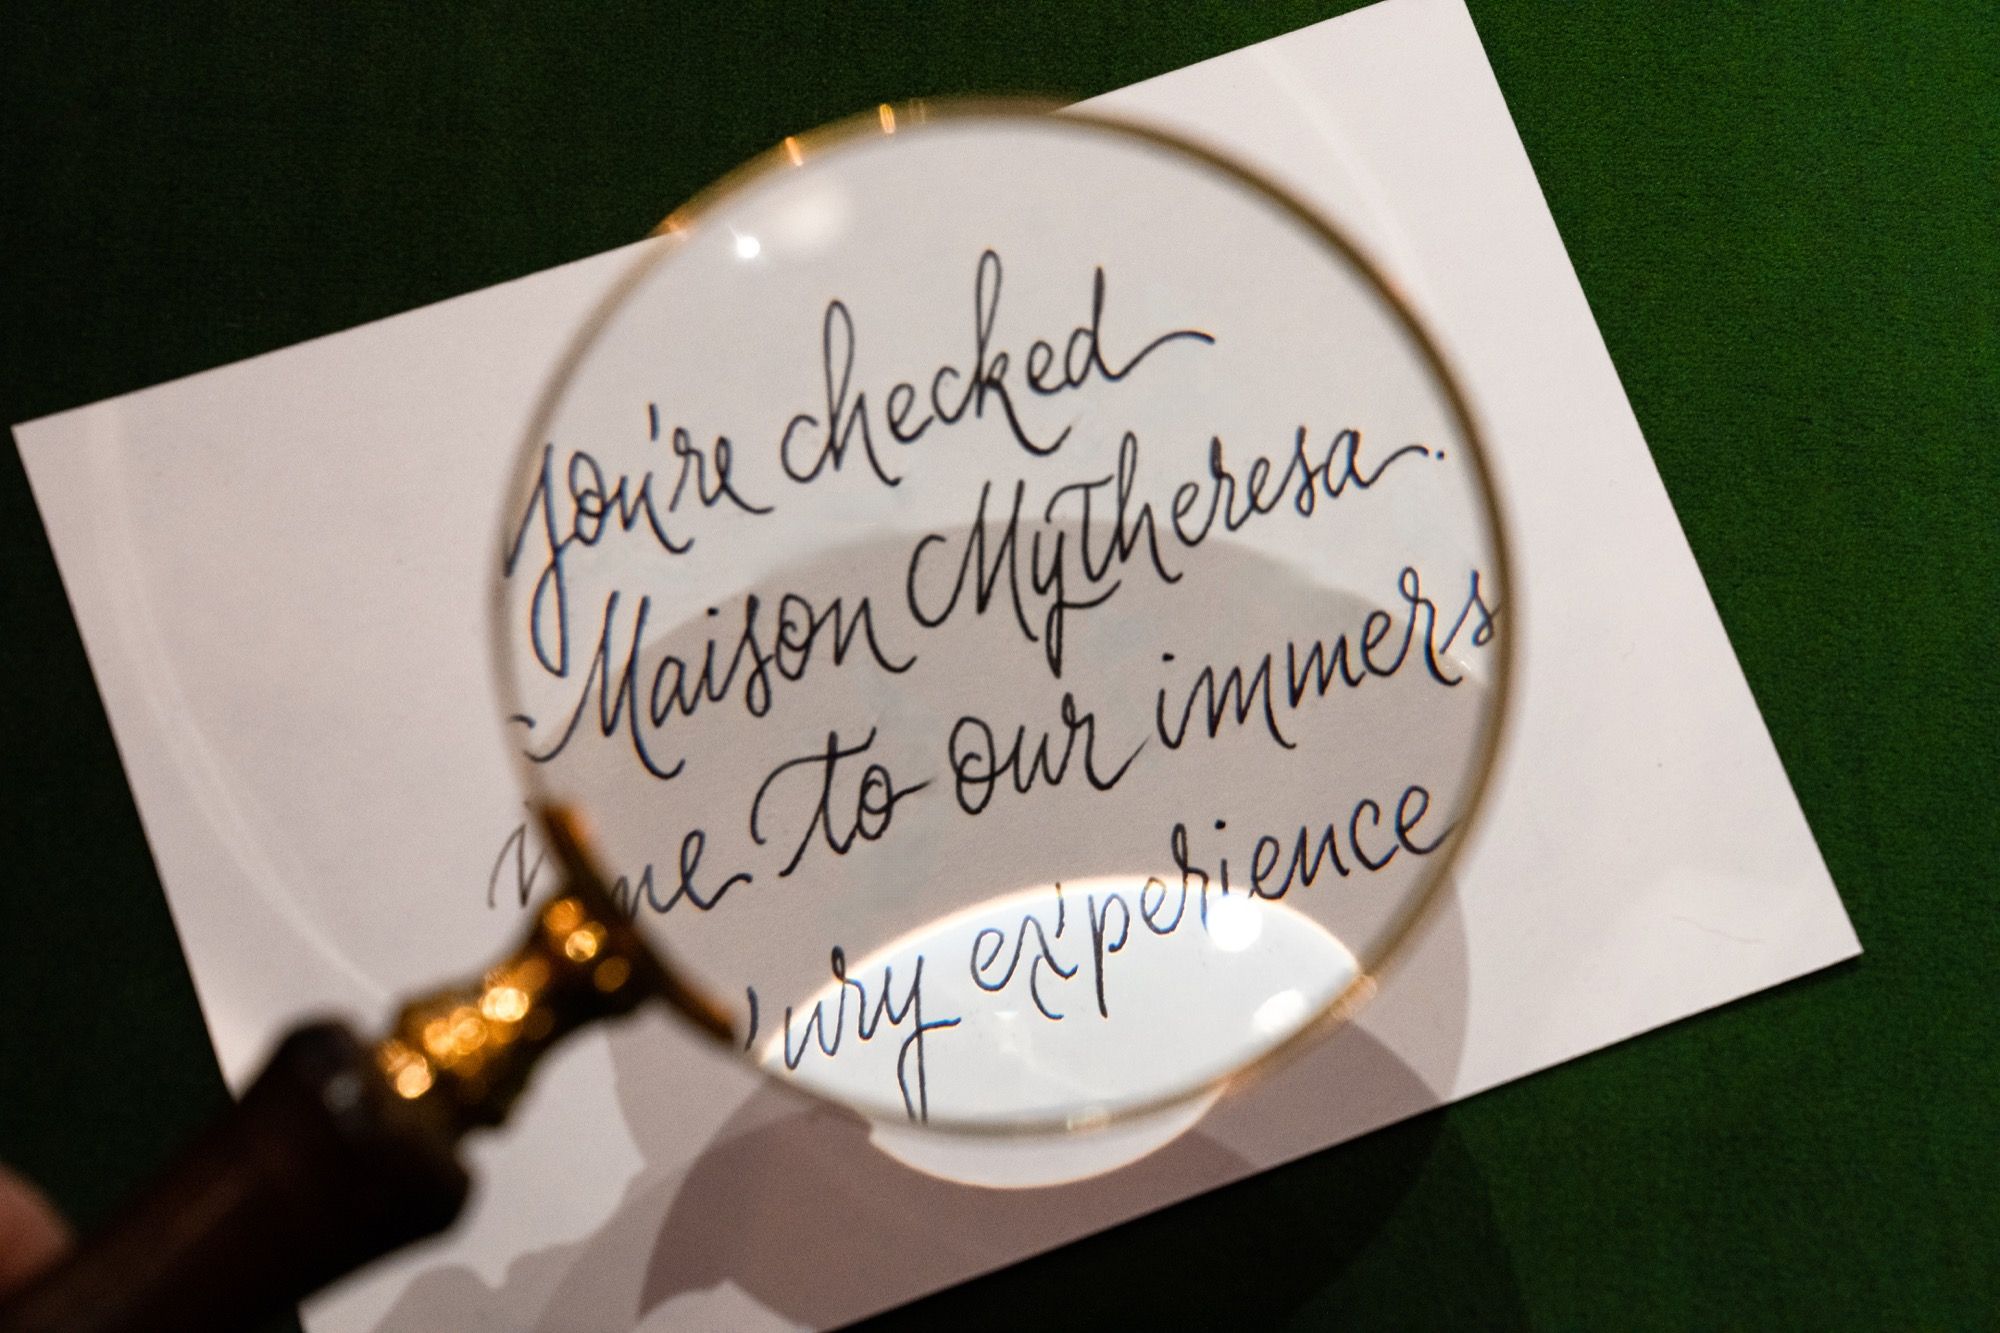 you're checked
Maison Mytheresa.
to our immers
experience